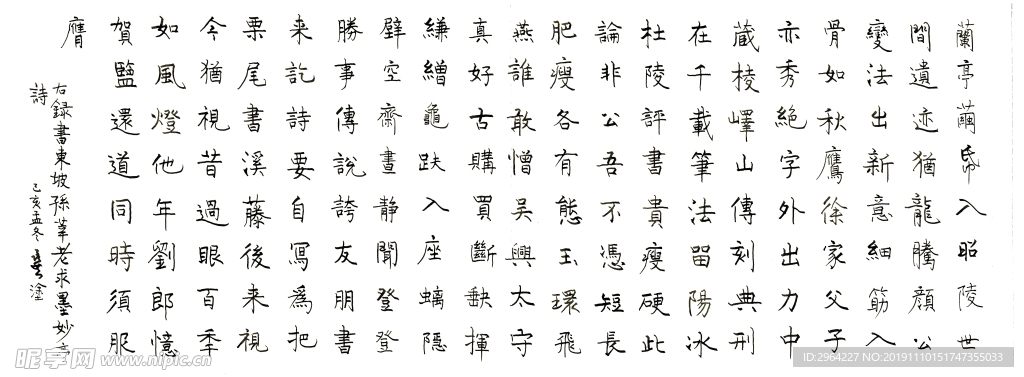 蘭亭繭帋入昭陵世
間遺迹猶龍騰顏公
變法出新意細筋入
骨如秋鷹徐家父子
亦秀絕字外出力中
蔵棱嶧山傳刻典刑
在千載筆法留陽冰
杜陵評書貴瘦硬此
論非公吾不憑短長
肥瘦各有態玉環飛
燕誰敢憎吳興太守
真好古購買斷缺揮
縑繒龜趺入座螭隱
壁空齋晝静聞登登
勝事傳說誇友朋書
来訖詩要自寫為把
栗尾書溪藤後来視
今猶視昔過眼百季
如風燈他年劉郎憶
賀監還道同時須服
膺
右錄書東坡孫莘老求墨妙亭
詩
己亥孟冬
塗
昵享网 www.nipic.cn
ID:2964227 NO:20191110151747355033